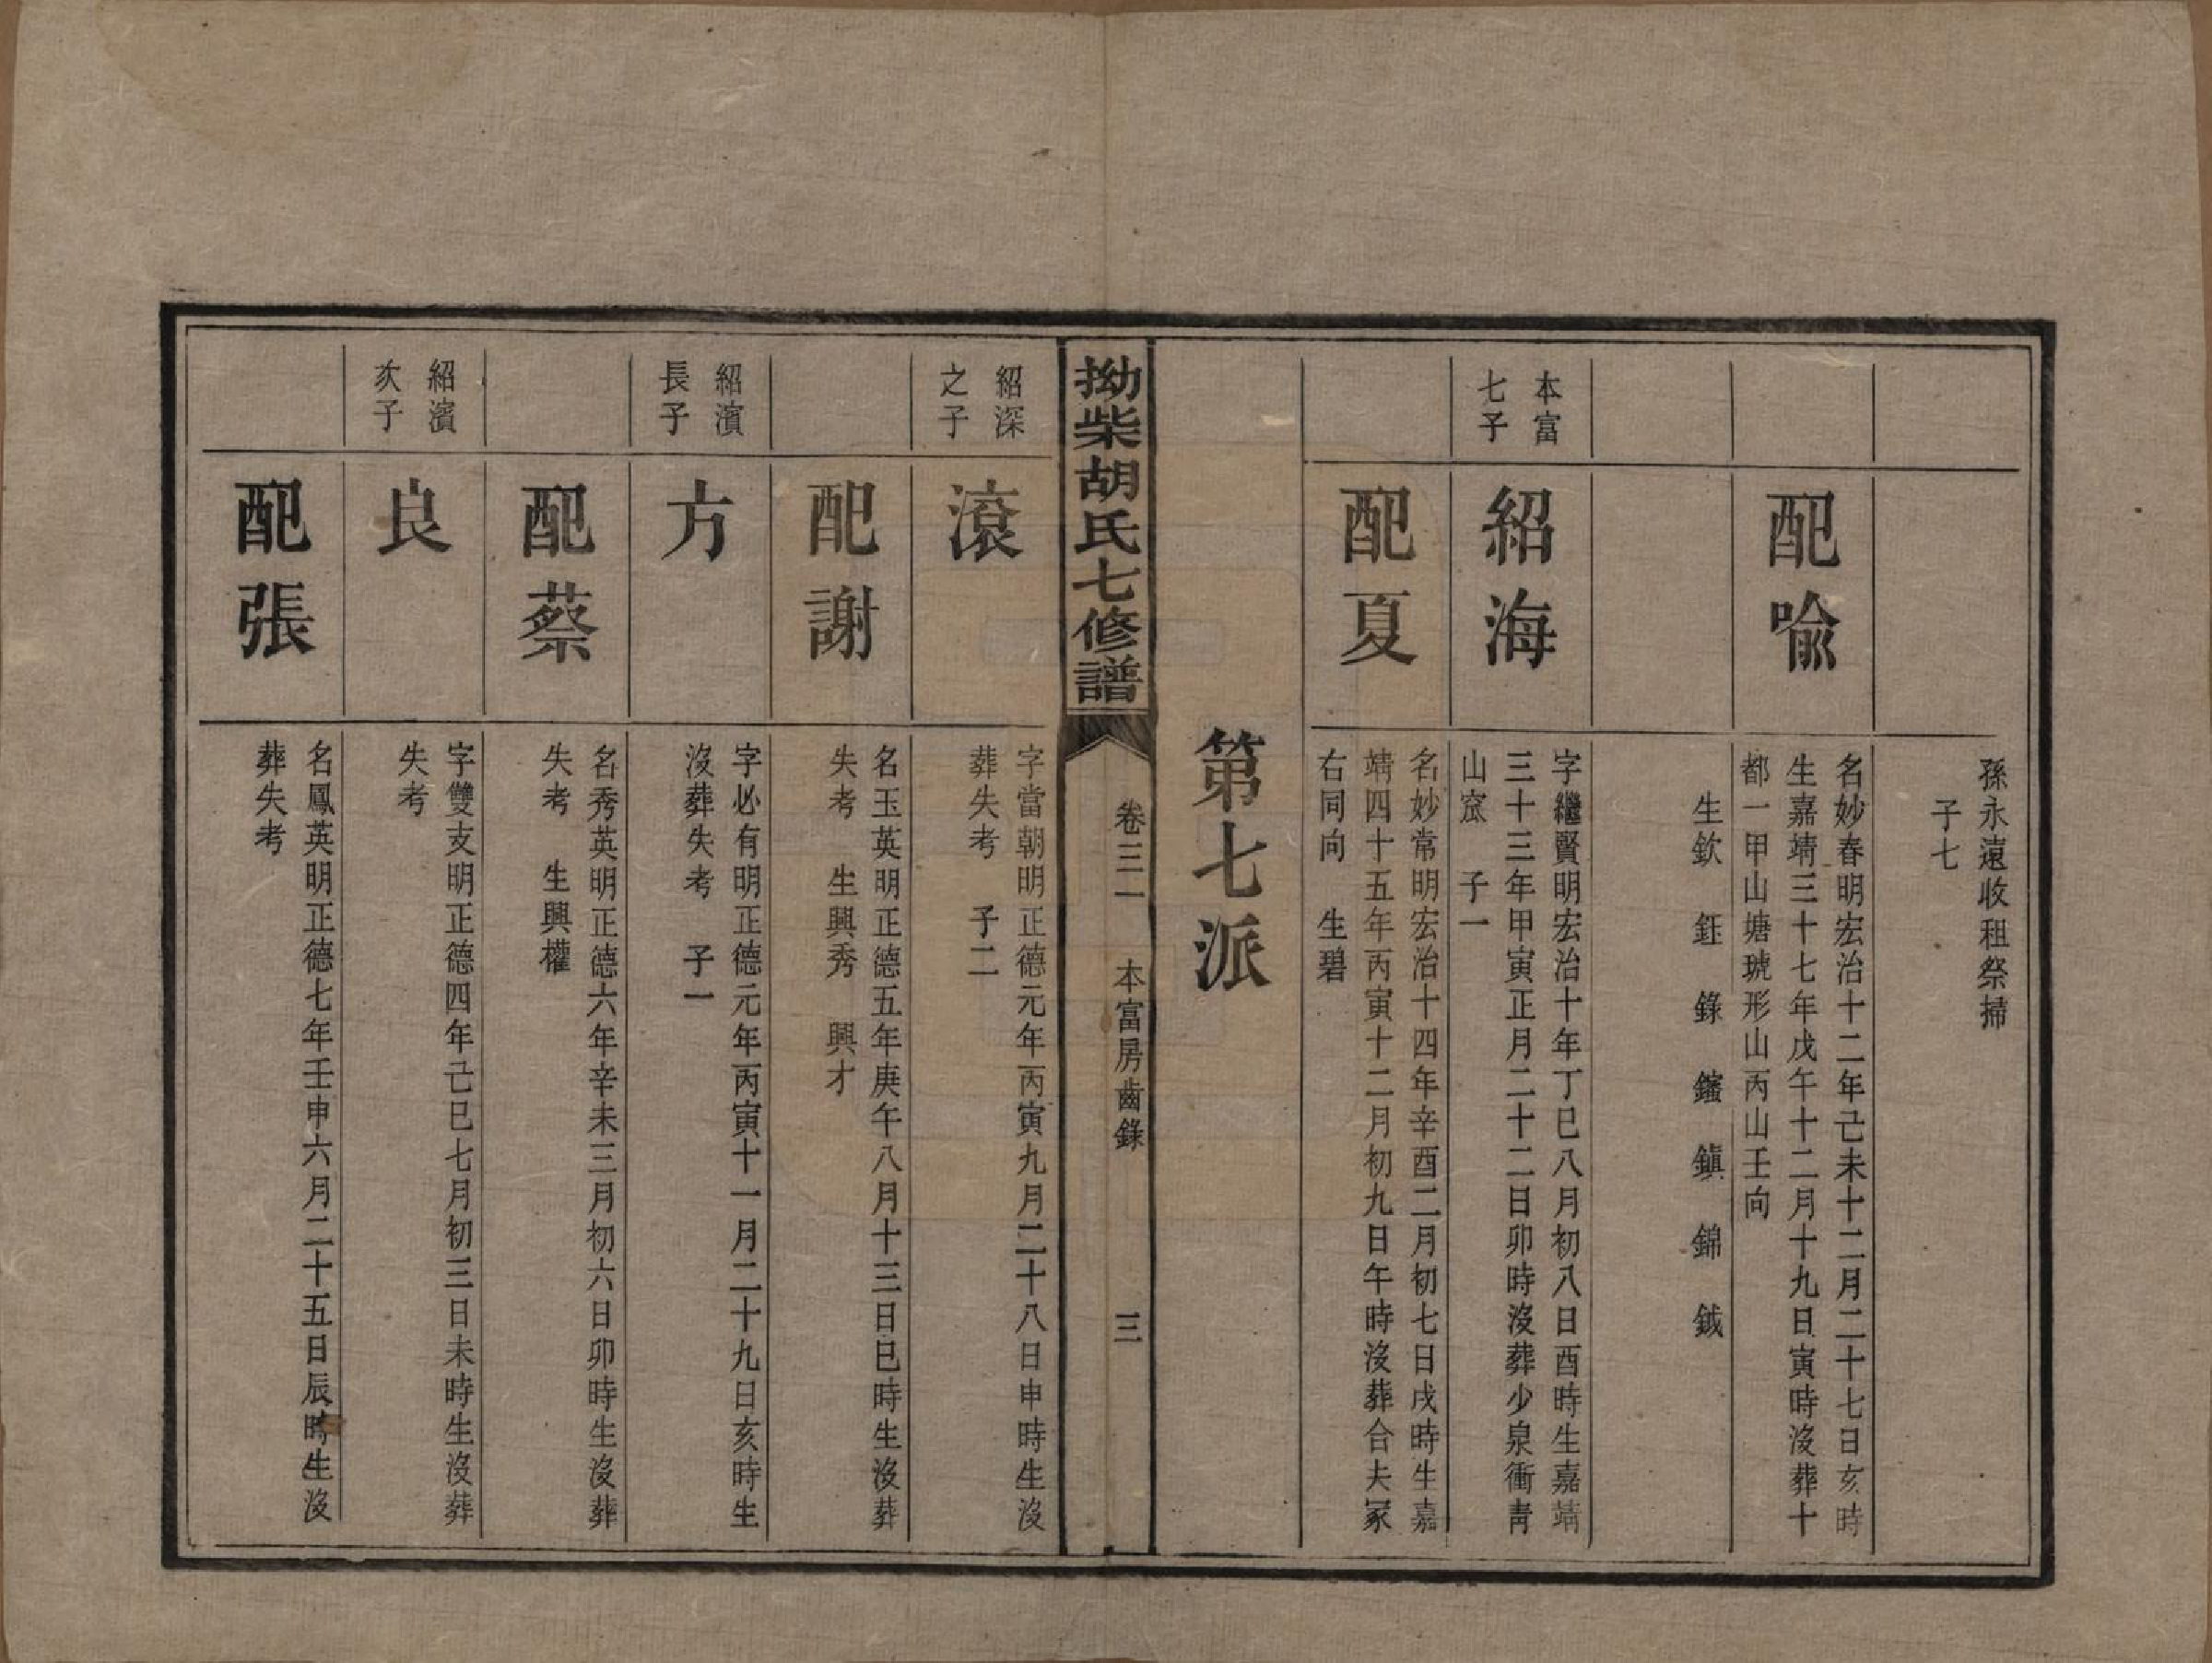 孫永遠收租祭掃
子七
配喩
名妙春明宏治十二年己未十二月二十七日亥時
生嘉靖三十七年戊午十二月十九日寅時沒葬十
都一甲山塘琥形山丙山壬向
生欽 鈺 錄 鑪 鎮 錦 鉞
本富
七子
紹海
字繼賢明宏治十年丁巳八月初八日酉時生嘉靖
三十三年甲寅正月二十二日卯時沒葬少泉衝靑
山窊 子一
配夏
名妙常明宏治十四年辛酉二月初七日戌時生嘉
靖四十五年丙寅十二月初九日午時沒葬合夫冢
右同向 生碧
第七派
拗柴胡氏七修譜
卷三一 本富房齒錄 三
紹深
之子
滾
字當朝明正德元年丙寅九月二十八日申時生沒
葬失考 子二
配謝
名玉英明正德五年庚午八月十三日巳時生沒葬
失考 生興秀 興才
紹濱
長子
方
字必有明正德元年丙寅十一月二十九日亥時生
沒葬失考 子一
配蔡
名秀英明正德六年辛未三月初六日卯時生沒葬
失考 生興權
紹濱
次子
良
字雙支明正德四年己巳七月初三日未時生沒葬
失考
配張
名鳳英明正德七年壬申六月二十五日辰時生沒
葬失考